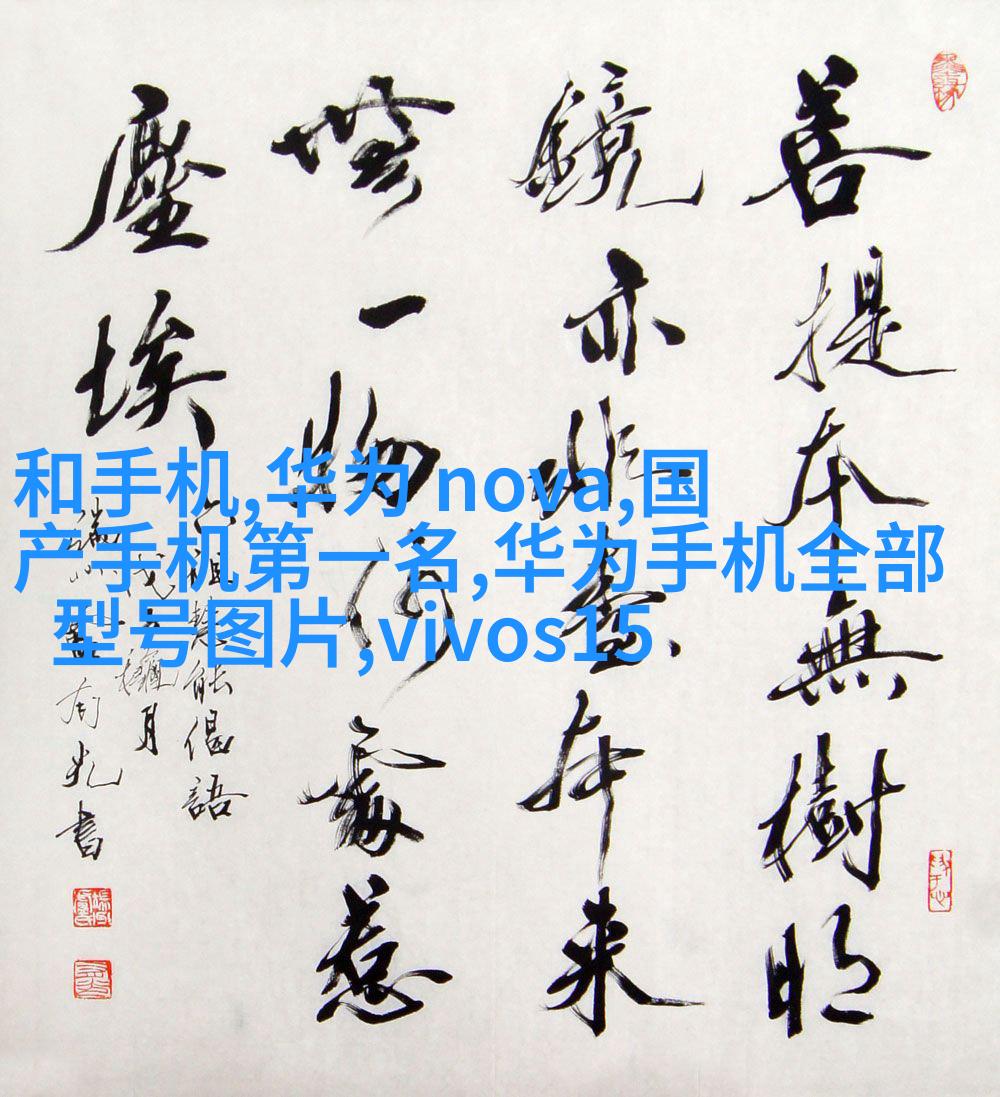 菩提本無樹明
鏡亦非臺本来
無一物何處惹
塵埃
六祖慧能偈語
和手机,华为 nova,国
产手机第一名,华为手机全部
型号图片,vivos15